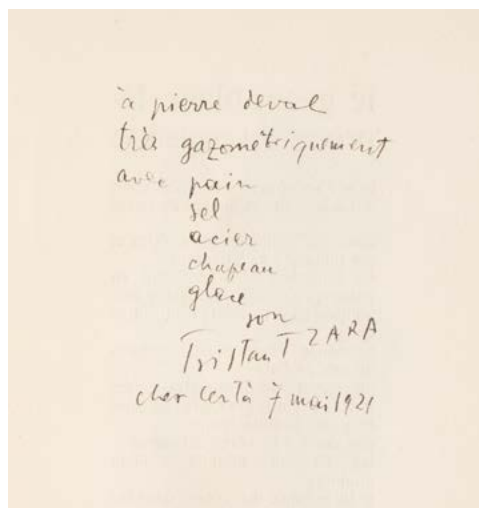 à pierre deval
très gazomètriquement
avec pain
sel
acier
chapeau
glace
son
Tristan TZARA
cher certà 7 mai 1921